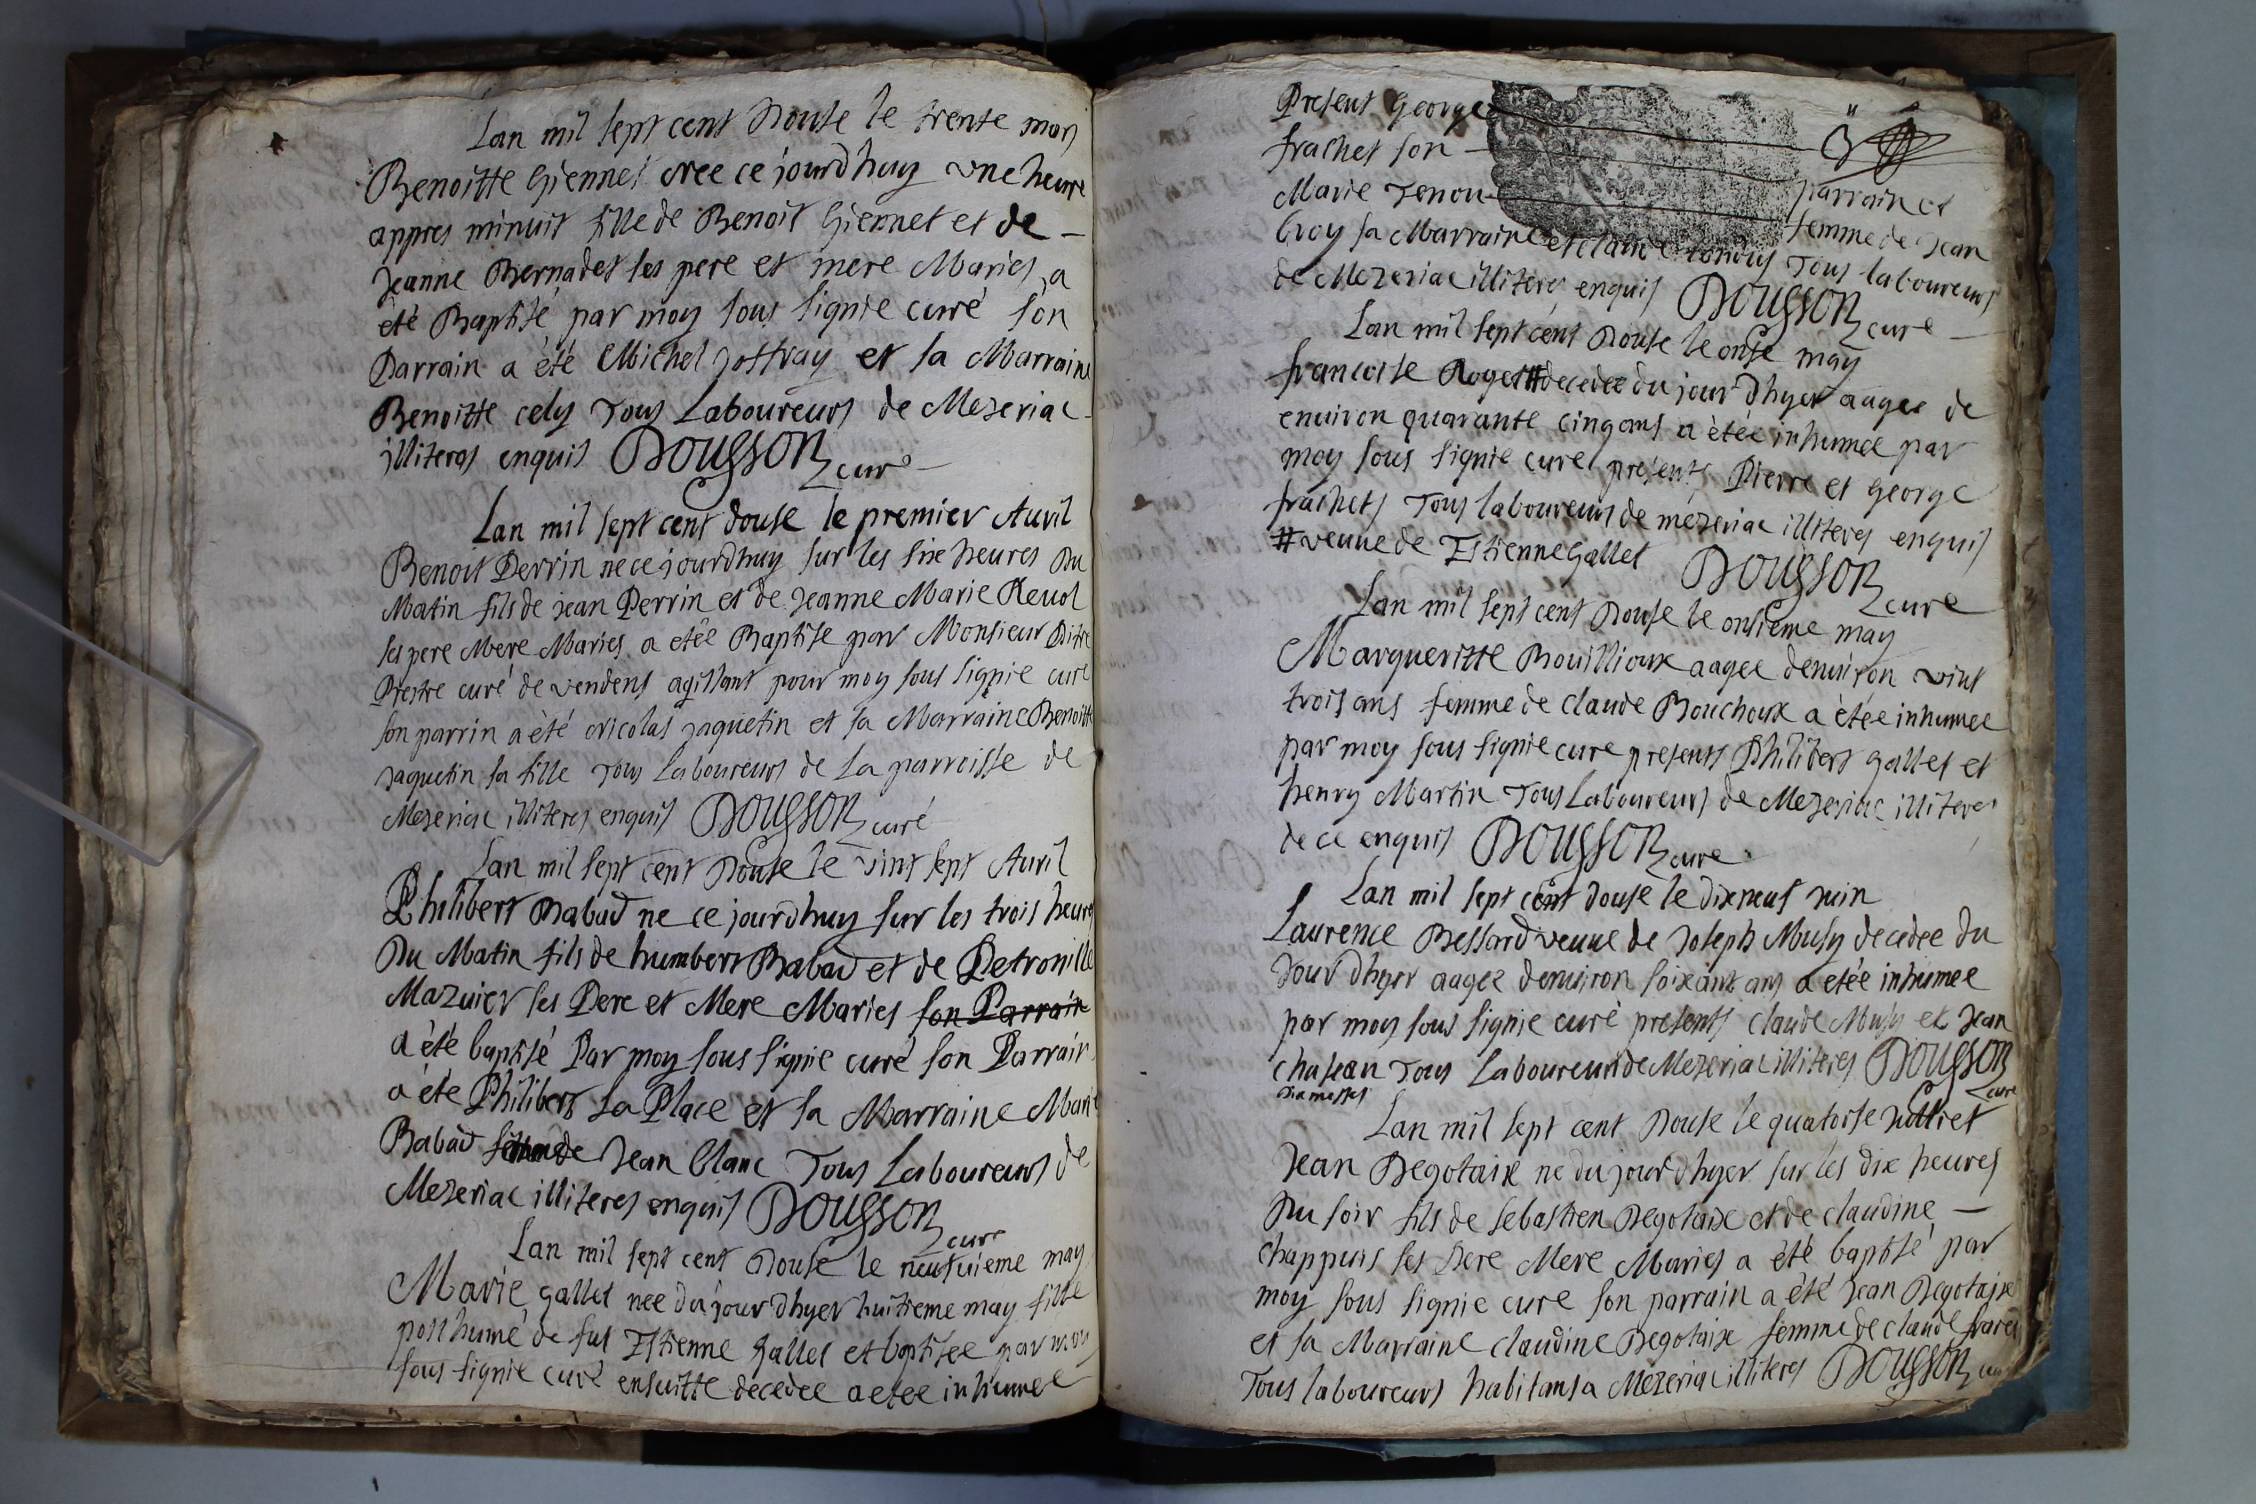 Lan mil sept cent douse le trente mars
Benoitte Giennet nee ce jourdhuy une heure
appres minuit fille de Benoit Giennet et de
Jeanne Bernadet ses pere et mere Maries a
été Baptisé par moy sous signie curé son
Parrain a été Michel Joffray et sa Marraine
Benoitte cely Tous Laboureurs de Mezeriac
illiteres enquis DOUSSON curé
Lan mil sept cent douse le premier Auril
Benoit Perrin ne ce jourdhuy sur les six heures du
Matin fils de jean Perrin et de Jeanne Marie Reuol
ses pere Mere Maries a etée Baptise par Monsieur
Prestre curé de vendens agissant pour moy sous signie curé
son parrin a été nicolas jaquetin et sa Marraine Benoitte
jaquetin sa fille Tous Laboureurs de La parroisse de
Mezeriac illiteres enquis DOUSSON curé
Lan mil sept cent douse le vint sept Auril
Philibert Babad ne ce jourdhuy sur les trois heures
du Matin fils de humbert Babad et de Petronille
Mazuier ses Pere et Mere Maries son Parrain
a été baptisé Par moy sous signie curé son Parrain
a été Philibert La Place et sa Marraine Marie
Babad femme de Jean Blanc Tous Laboureurs de
Mezeriac illiteres enquis DOUSSON curé
Lan mil sept cent douse le neufuieme may
Marie gallet nee du jour dhyer huitieme may fille
posthume de fut Estienne gallet et baptisee par moy
sous signie curé ensuitte decedee a etee inhumee
Present George
frachet son parrain et
Marie Tenou femme de Jean
broy sa Marraine et claude Tous laboureurs
de Mezeriac illiteres enquis DOUSSON cure
Lan mil sept cent douse le onse may
francoise Roget # decedee du jour dhyer aagee de
enuiron quarante cinq ans a étée inhumee par
moy sous signie curé presents Pierre et George
frachets Tous laboureurs de mezeriac illiteres enquis
# veuue de Estienne gallet DOUSSON cure
Lan mil sept cent douse le onsieme may
Margueritte Bouillioux aagee denuiron vint
trois ans femme de claude Bouchoux a étée inhumee
par moy sous signie cure presents Philibert gallet et
henry Martin Tous Laboureurs de Mezeriac illiteres
de ce enquis DOUSSON cure
Lan mil sept cent douse le dix neuf juin
Laurence Bessard veuue de Joseph Musy decedee du
jour dhyer aagee denuiron soixant ans a etée inhumee
par moy sous signie curé presents claude Musy et Jean
Tous Laboureurs de Mezeriac illiteres DOUSSON cure
Lan mil sept cent douse le quatorse juillet
Jean Degotaix ne du jour dhyer sur les dix heures
du soir fils de sebastien Degotaix et de claudine
chappuis ses Pere Mere Maries a été baptisé par
moy sous signie cure son parrain a été Jean Degotaix
et sa Marraine claudine Degotaix femme de claude
Tous laboureurs habitans a Mezeriac illiteres DOUSSON curé